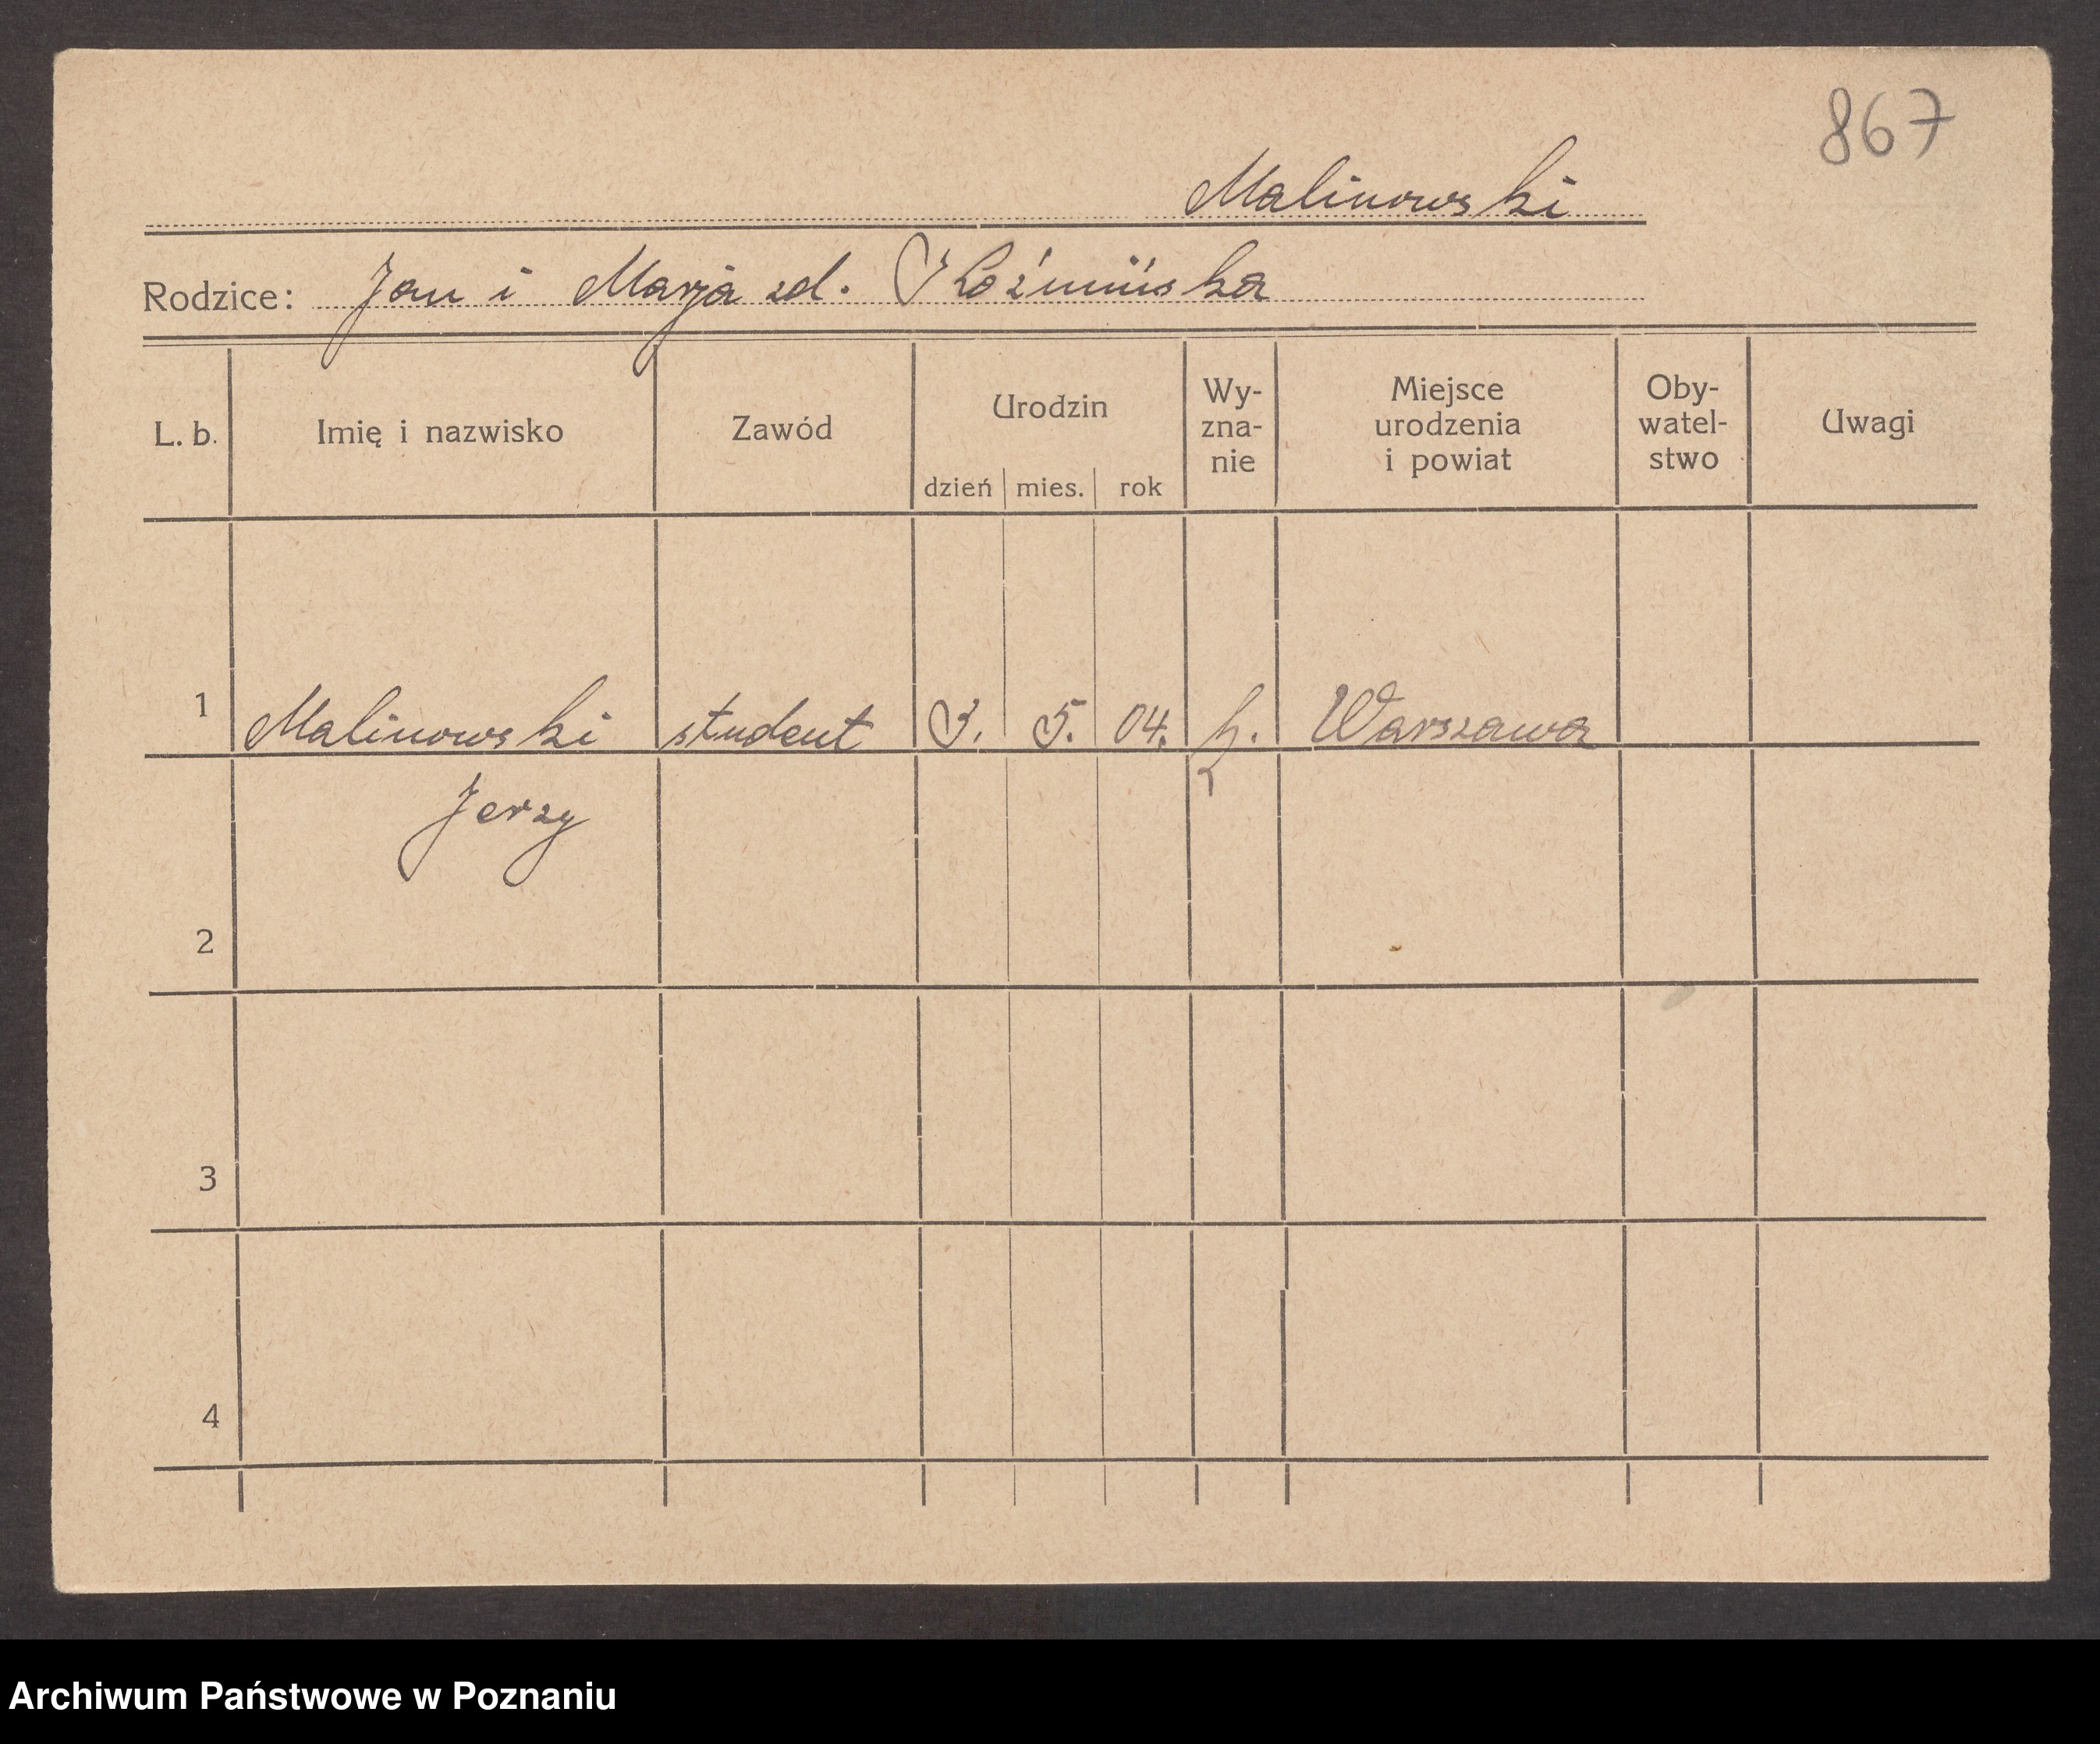 867
Malinowski
Rodzice: Jan i Marja zd. Koźmińska
L. b. Imię i nazwisko Zawód Urodzin dzień mies. rok Wy- zna- nie Miejsce urodzenia i powiat Oby- watel- stwo Uwagi
1 Malinowski student 3. 5. 04. Warszawa
Jerzy
2
3
4
Archiwum Państwowe w Poznaniu